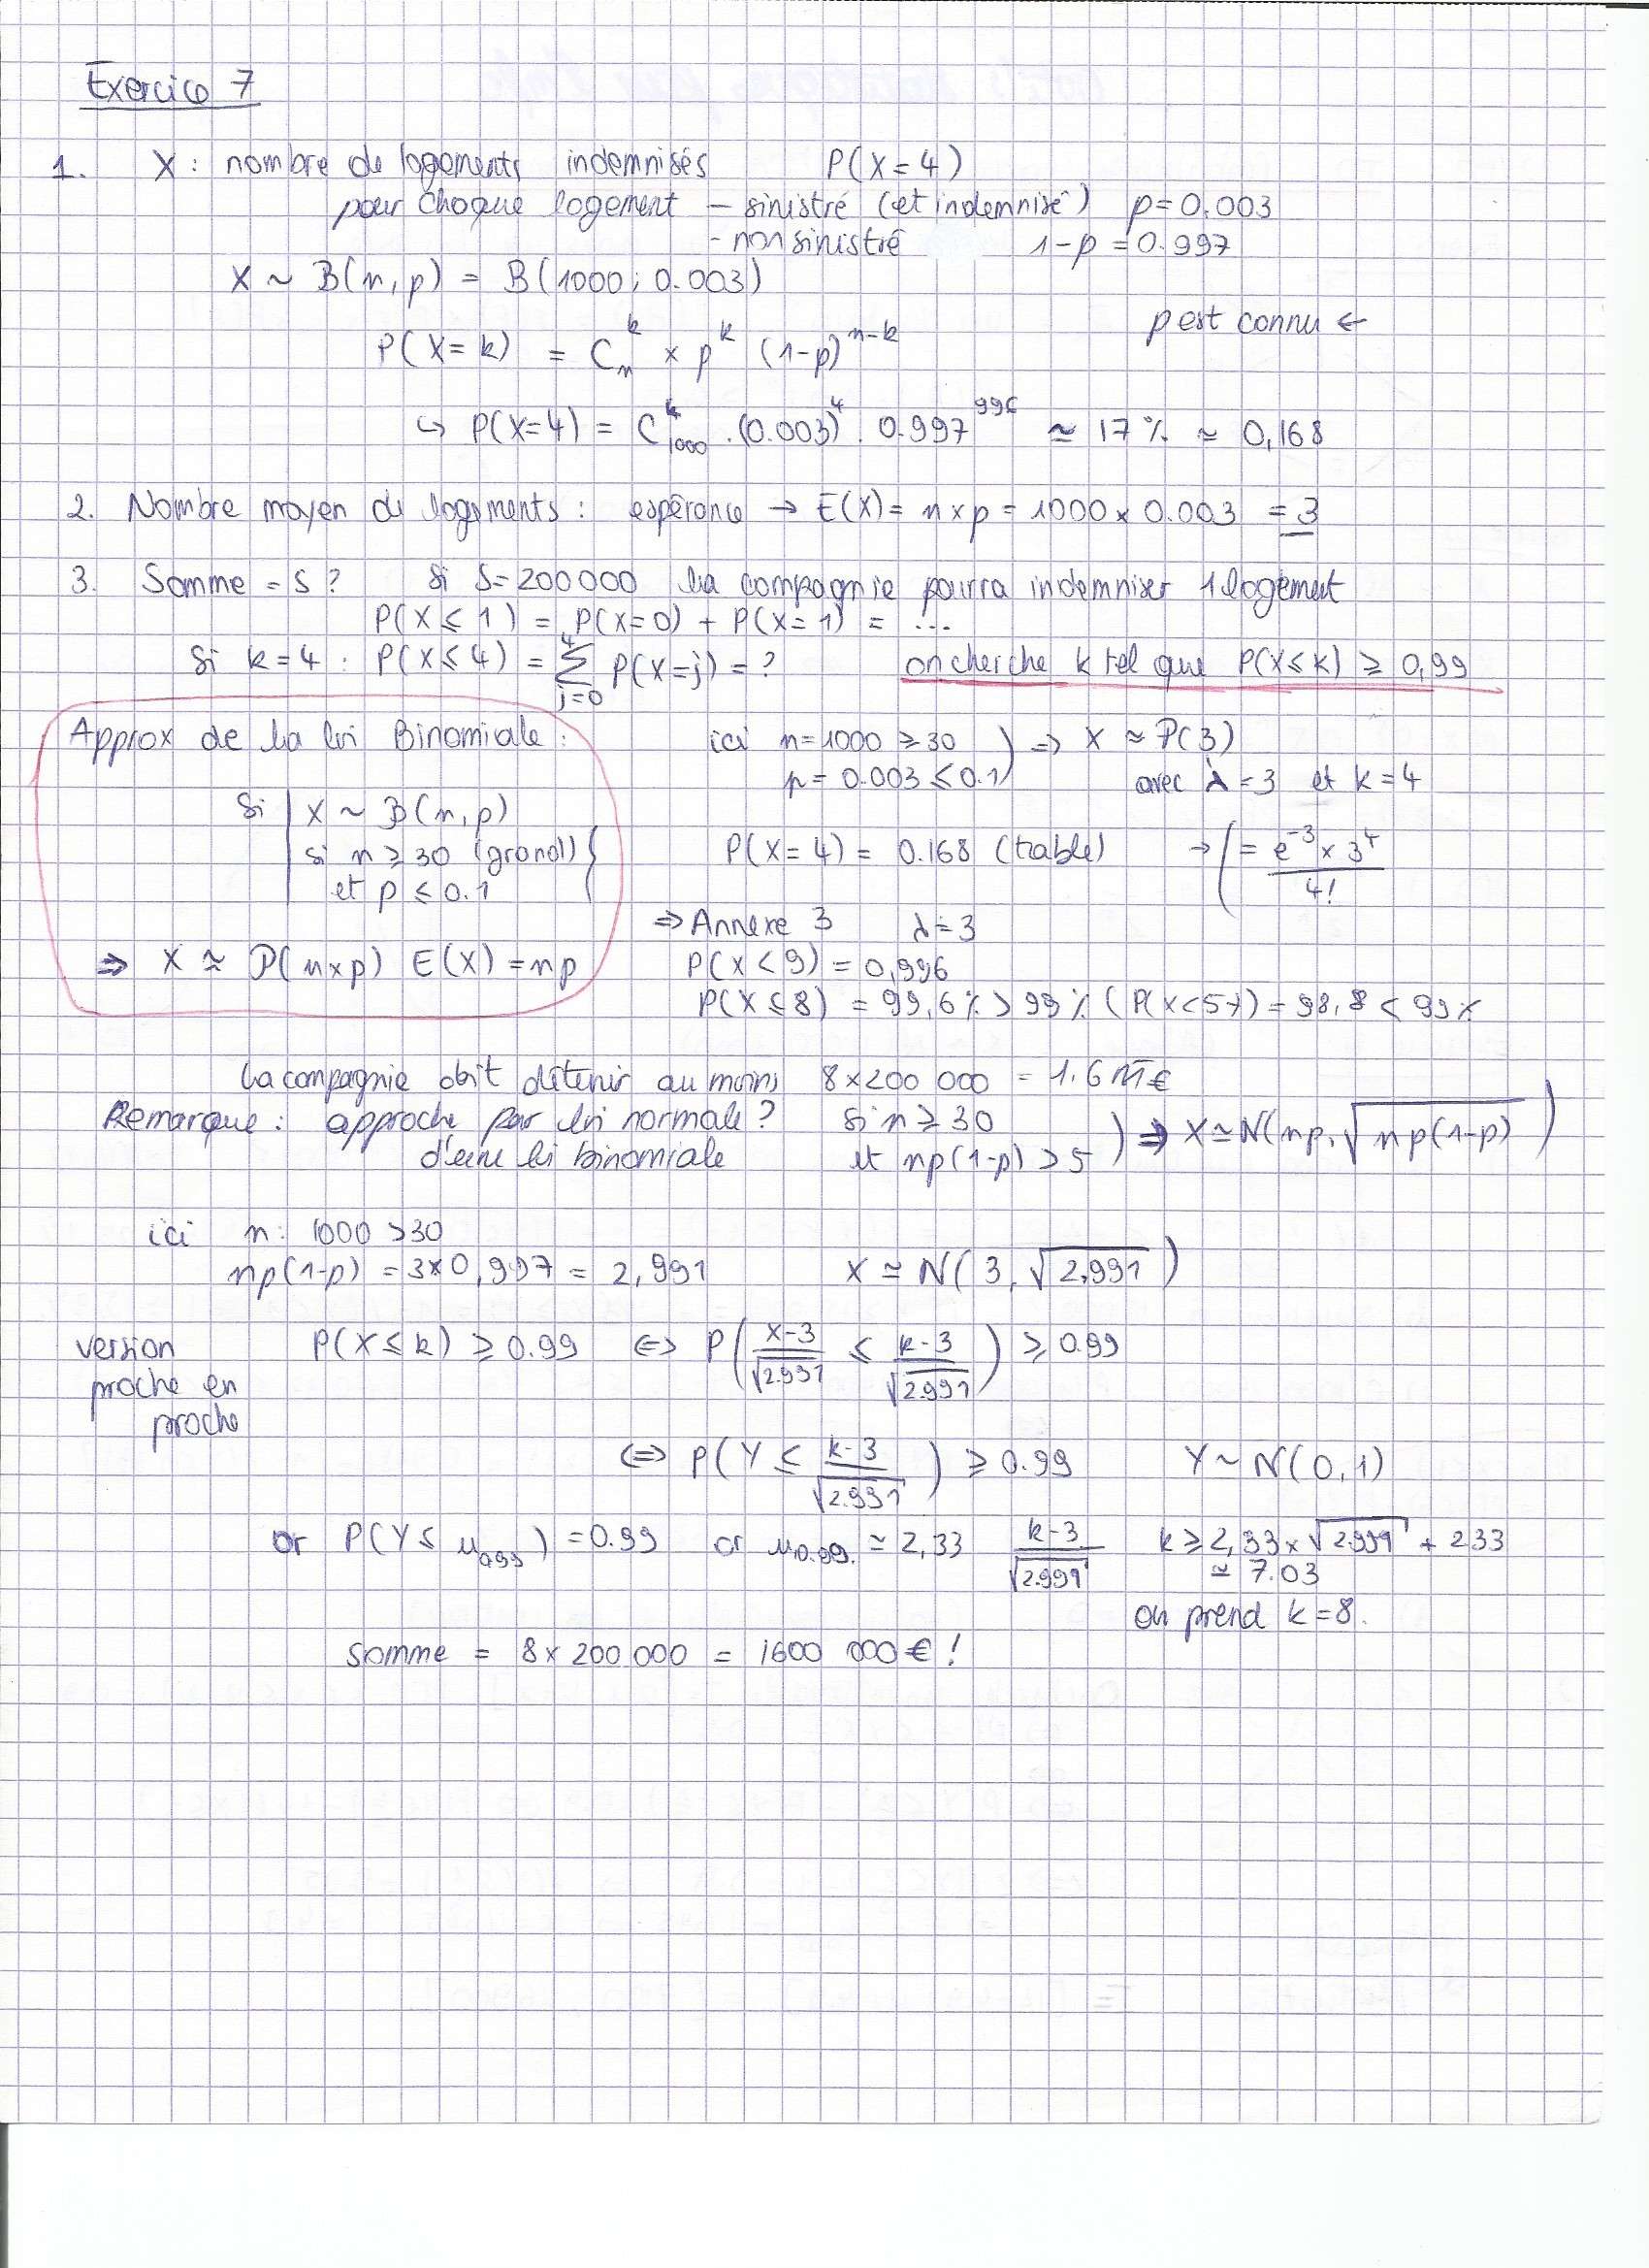 Exercice 7
1. X : nombre de logements indemnisés P(X=4)
pour chaque logement – sinistré (et indemnisé) p=0.003
- non sinistré 1-p = 0.997
X ~ B(n,p) = B(1000; 0.003)
p est connu ←
P(X=k) = C_n^k × p^k (1-p)^{n-k}
↪ P(X=4) = C_{1000}^4 . (0.003)^4 . 0.997^{996} ≃ 17% ≃ 0,168
2. Nombre moyen de logements : espérance → E(X) = n×p = 1000×0.003 = 3
3. Somme = S ? Si S=200000 la compagnie pourra indemniser 1 logement
P(X≤1) = P(X=0) + P(X=1) = ...
Si k=4 : P(X≤4) = Σ_{j=0}^4 P(X=j) = ? on cherche k tel que P(X≤k) ≥ 0,99
Approx de la loi Binomiale : ici n=1000 ≥30 ) ⇒ X ≈ P(3)
p = 0.003 ≤ 0.1 avec λ=3 et k=4
Si | X ~ B(n,p)
si n≥30 (grand) P(X=4) = 0.168 (table) → ( = e^{-3} × 3^4 / 4!
et p ≤ 0.1
⇒ Annexe 3 λ=3
⇒ X ≃ P(n×p) E(X) = np P(X<9) = 0,996
P(X≤8) = 99,6% > 99% (P(X<57) = 98,8 < 99%
La compagnie doit détenir au moins 8×200 000 = 1.6 M€
Remarque : approche par loi normale ? Si n≥30
d'une loi binomiale et np(1-p) > 5 ) ⇒ X≃N(np, √np(1-p))
ici n: 1000 >30
np(1-p) = 3×0,997 = 2,991 X ≃ N(3, √2,991)
version P(X≤k) ≥ 0.99 ⇔ P( X-3 / √2.991 ≤ k-3 / √2.991 ) ≥ 0.99
proche en
proche
⇔ P(Y ≤ k-3 / √2.991 ) ≥ 0.99 Y ~ N(0,1)
or P(Y≤ u_{0.99}) = 0.99 or u_{0.99.} ≃ 2,33 k-3 / √2.991 k≥2,33×√2.991 + 2.33
≃ 7.03
on prend k=8.
somme = 8×200 000 = 1600 000€ !